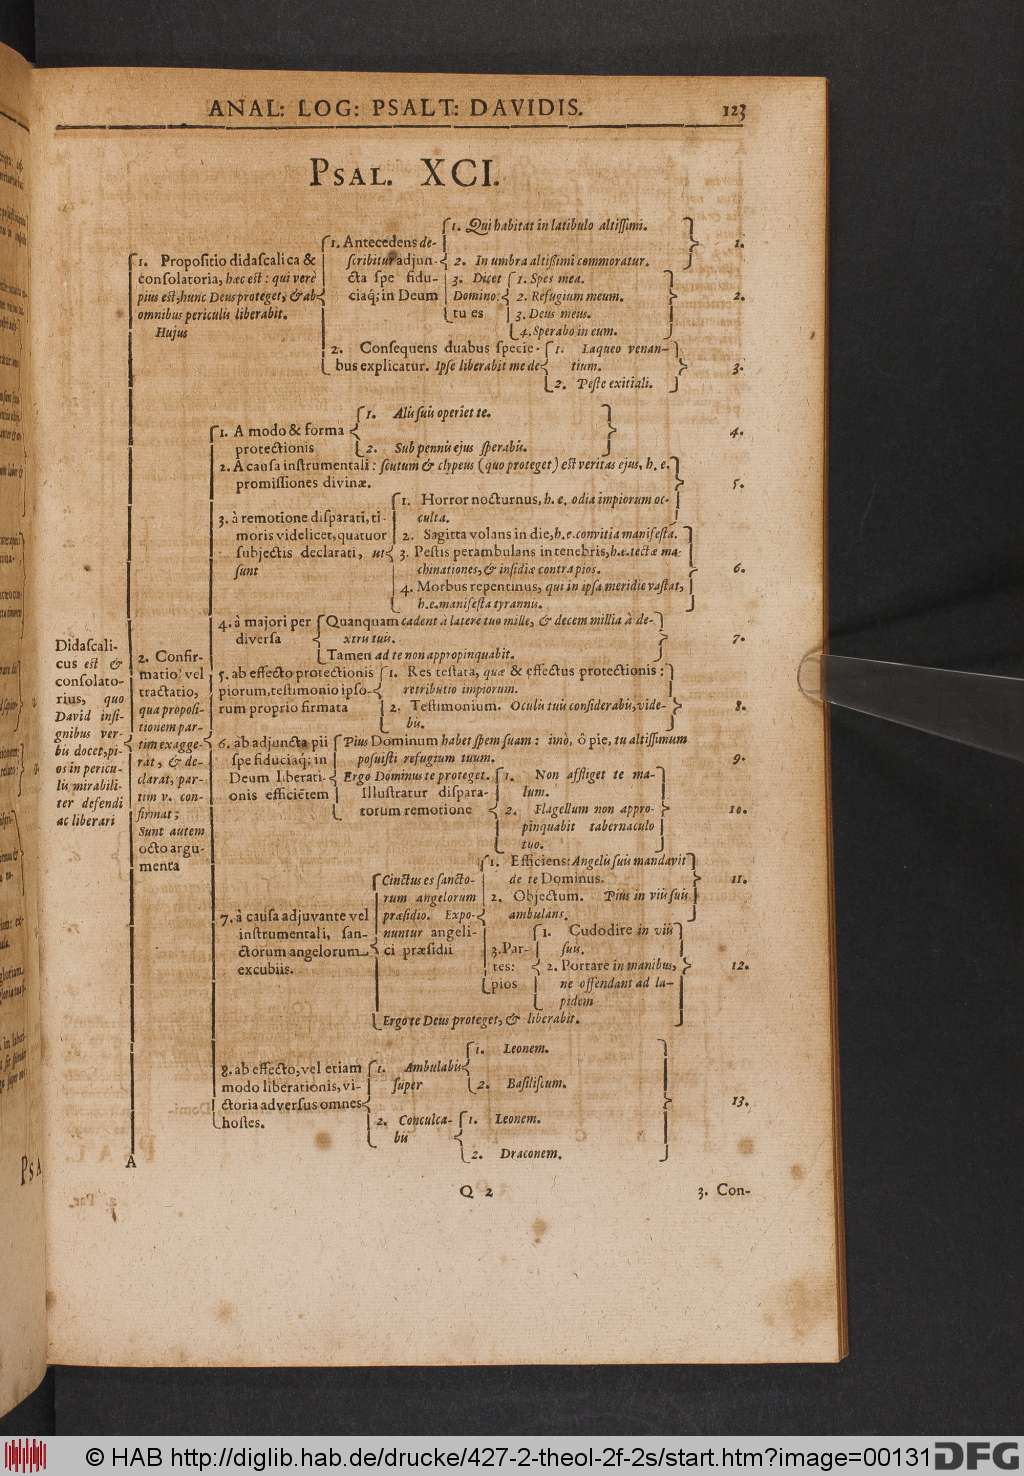 ANAL: LOG: PSALT: DAVIDIS. 123
PSAL. XCI.
Didascali-
cus est &
consolato-
rius, quo
David insi-
gnibus ver-
bis docet, pi-
os in pericu-
lis mirabili-
ter defendi
ac liberari
1. Propositio didascalica &
consolatoria, hæc est: qui verè
pius est, hunc Deus proteget, & ab
omnibus periculis liberabit.
Hujus
1. Antecedens de-
scribitur adjun-
cta spe fidu-
ciaq; in Deum
1. Qui habitat in latibulo altissimi.
2. In umbra altissimi commoratur.
1.
3. Dicet
Domino:
tu es
1. Spes mea.
2. Refugium meum.
3. Deus meus.
4. Sperabo in eum.
2.
2. Consequens duabus specie-
bus explicatur. Ipse liberabit me de
1. Laqueo venan-
tium.
2. Peste exitiali.
3.
2. Confir-
matio, vel
tractatio,
qua proposi-
tionem par-
tim exagge-
rat, & de-
clarat, par-
tim v. con-
firmat;
Sunt autem
octo argu-
menta
1. A modo & forma
protectionis
1. Alis suis operiet te.
2. Sub pennis ejus sperabis.
4.
2. A causa instrumentali: scutum & clypeus (quo proteget) est veritas ejus, h. e.
promissiones divinæ.
5.
3. à remotione disparati, ti-
moris videlicet, quatuor
subjectis declarati, ut
sunt
1. Horror nocturnus, h. e. odia impiorum oc-
culta.
2. Sagitta volans in die, h. e. convitia manifesta.
3. Pestis perambulans in tenebris, h. e. tectæ ma-
chinationes, & insidiæ contra pios.
4. Morbus repentinus, qui in ipsa meridie vastat,
h. e. manifesta tyrannis.
6.
4. à majori per
diversa
Quanquam cadent à latere tuo mille, & decem millia à de-
xtris tuis.
Tamen ad te non appropinquabit.
7.
5. ab effecto protectionis
piorum, testimonio ipso-
rum proprio firmata
1. Res testata, quæ & effectus protectionis:
retributio impiorum.
2. Testimonium. Oculis tuis considerabis, vide-
bis.
8.
6. ab adjuncta pii
spe fiduciaq; in
Deum liberati-
onis efficiẽtem
Pius Dominum habet spem suam: imò, ô pie, tu altissimum
posuisti refugium tuum.
9.
Ergo Dominus te proteget.
Illustratur dispara-
torum remotione
1. Non affliget te ma-
lum.
2. Flagellum non appro-
pinquabit tabernaculo
tuo.
10.
7. à causa adjuvante vel
instrumentali, san-
ctorum angelorum
excubiis.
Cinctus es sancto-
rum angelorum
præsidio. Expo-
nuntur angeli-
ci præsidii
1. Efficiens: Angelis suis mandavit
de te Dominus.
2. Objectum. Pius in viis suis
ambulans.
11.
3. Par-
tes:
pios
1. Cudodire in viis
suis.
2. Portare in manibus,
ne offendant ad la-
pidem
12.
Ergo te Deus proteget, & liberabit.
8. ab effecto, vel etiam
modo liberationis, vi-
ctoria adversus omnes
hostes.
1. Ambulabis
super
1. Leonem.
2. Basiliscum.
2. Conculca-
bis
1. Leonem.
2. Draconem.
13.
A
Q 2
3. Con-
© HAB http://diglib.hab.de/drucke/427-2-theol-2f-2s/start.htm?image=00131
DFG